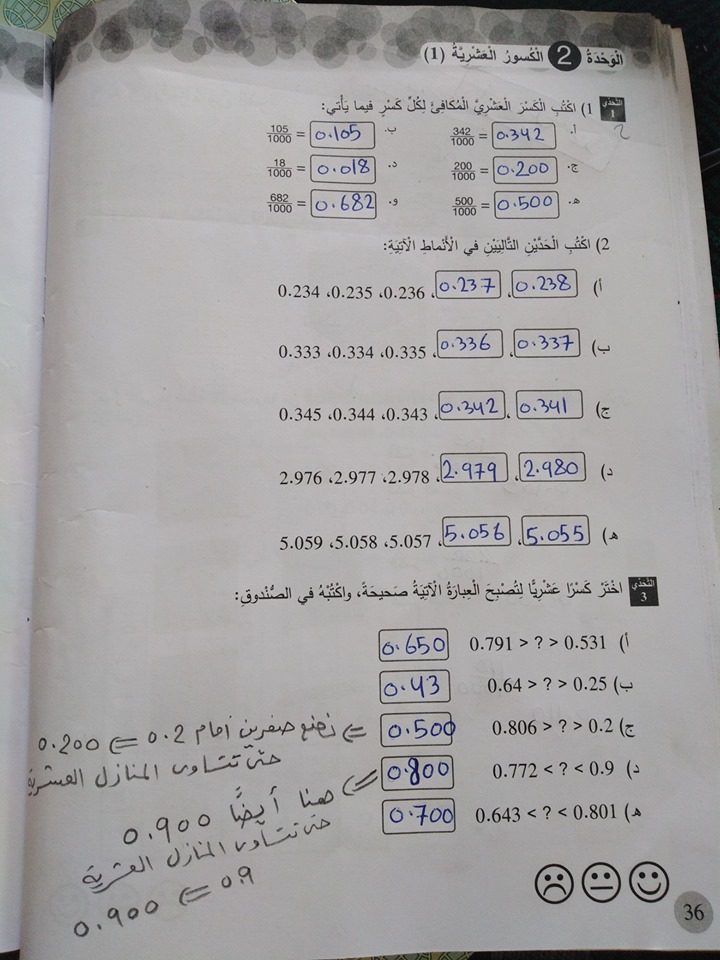 الْوَحْدَةُ 2 الْكُسورُ الْعَشْرِيَّةُ (1)
التَّحَدّي 1
1) اكْتُبِ الْكَسْرَ الْعَشْرِيَّ الْمُكافِئَ لِكُلِّ كَسْرٍ فيما يَأْتي:
أ. 342/1000 = 0.342 ب. 105/1000 = 0.105
ج. 200/1000 = 0.200 د. 18/1000 = 0.018
هـ. 500/1000 = 0.500 و. 682/1000 = 0.682
2) اكْتُبِ الْحَدَّيْنِ التّالِيَيْنِ في الْأَنْماطِ الْآتِيَةِ:
أ) 0.234 ،0.235 ،0.236 ، 0.237 ، 0.238
ب) 0.333 ،0.334 ،0.335 ، 0.336 ، 0.337
ج) 0.345 ،0.344 ،0.343 ، 0.342 ، 0.341
د) 2.976 ،2.977 ،2.978 ، 2.979 ، 2.980
هـ) 5.059 ،5.058 ،5.057 ، 5.056 ، 5.055
التَّحَدّي 3
اخْتَرْ كَسْرًا عَشْرِيًّا لِتُصْبِحَ الْعِبارَةُ الْآتِيَةُ صَحيحَةً، واكْتُبْهُ في الصُّنْدوقِ:
أ) 0.791 > ? > 0.531 0.650
ب) 0.64 > ? > 0.25 0.43
ج) 0.806 > ? > 0.2 0.500
د) 0.772 < ? < 0.9 0.800
هـ) 0.643 < ? < 0.801 0.700
نضع صفرين أمام 0.2 => 0.200
حتى تتساوى المنازل العشرية
هنا أيضًا 0.900
حتى تتساوى المنازل العشرية
0.9 => 0.900
36